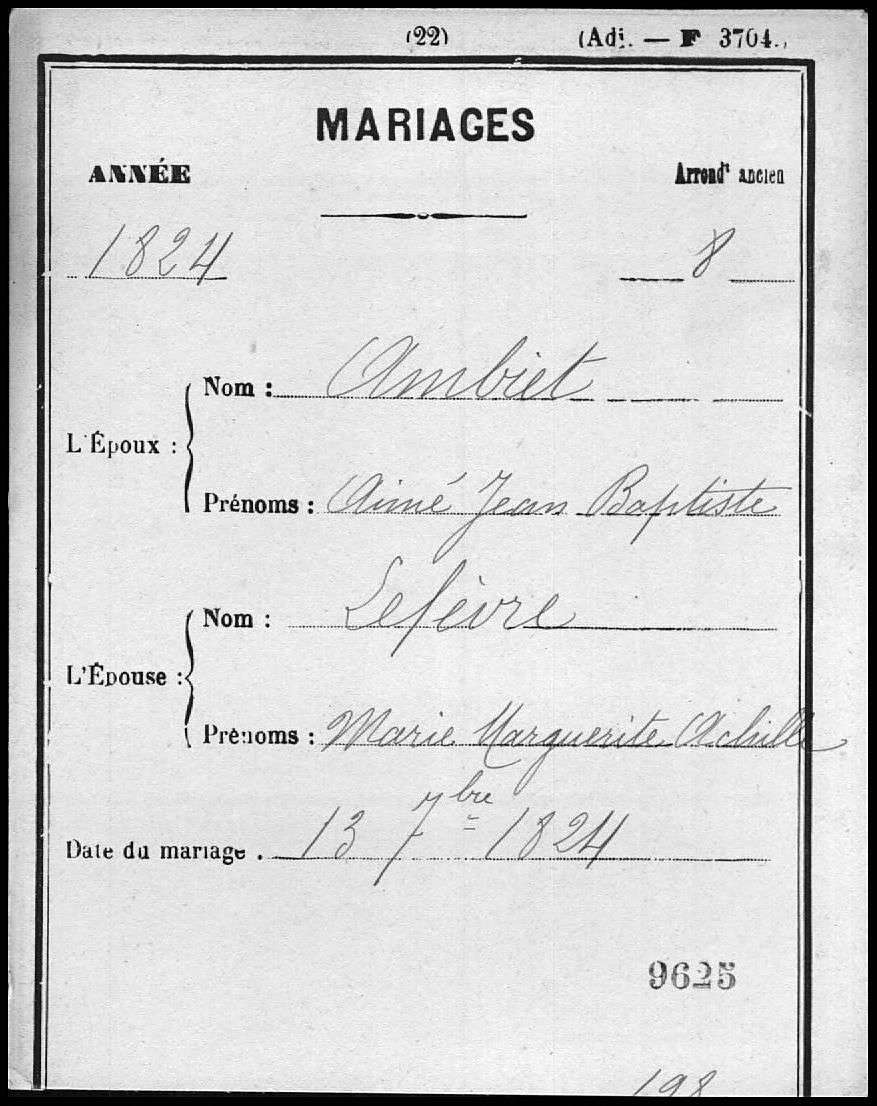 (22) (Adj. — F 3704.)
MARIAGES
ANNÉE Arrondt ancien
1824 8
Nom : Ambiet
L'Époux :
Prénoms : Aimé Jean Baptiste
Nom : Lefèvre
L'Épouse :
Prénoms : Marie Marguerite Achille
Date du mariage . 13 7bre 1824
9625
198